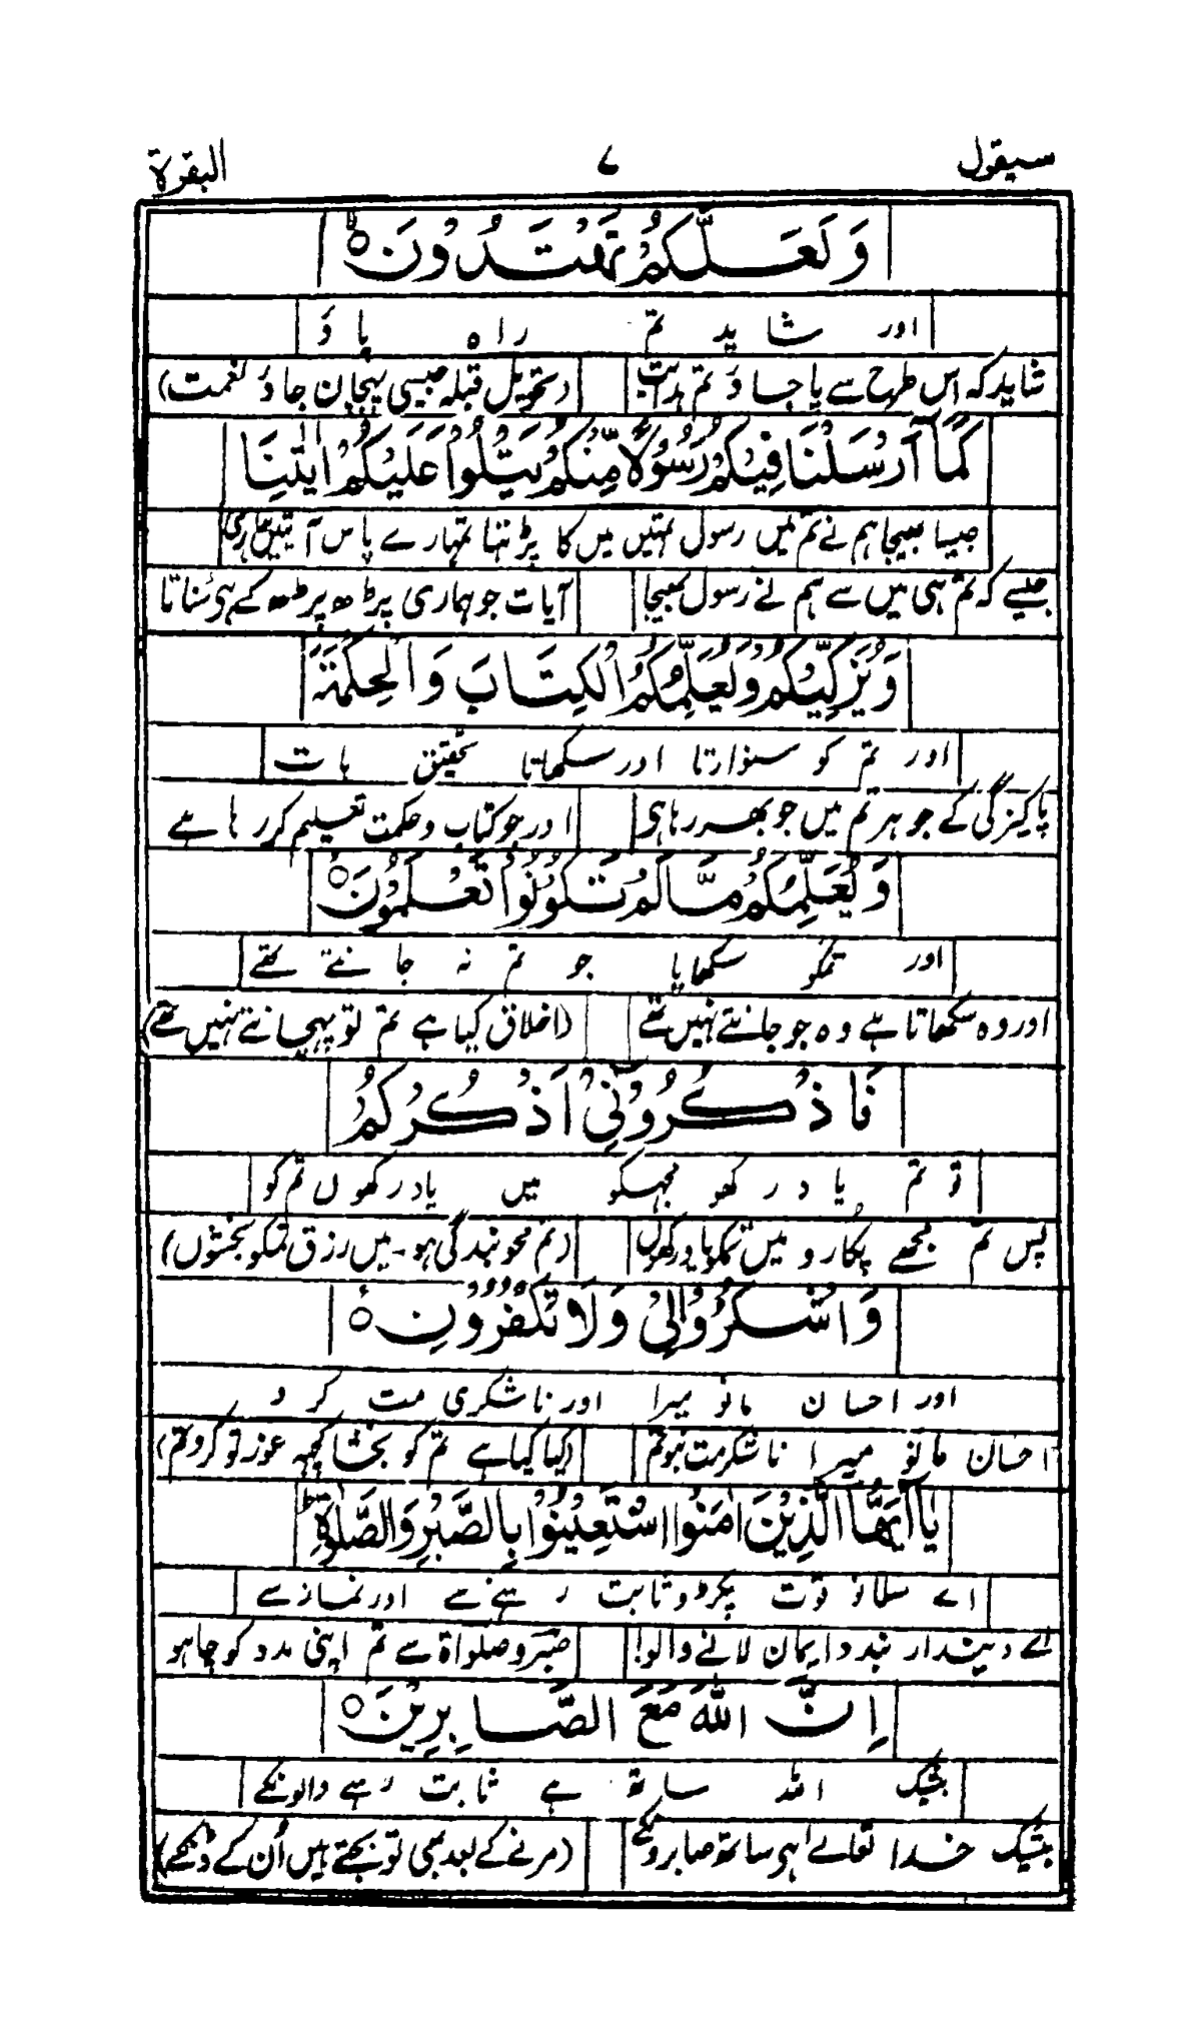 سیقول ۷ البقرة
وَلَعَلَّكُمْ تَهْتَدُوْنَ ۙ
اور شاید تم راہ پاؤ
شاید کہ اس طرح سے پا جاؤ تم ہدایت (تحویل قبلہ جیسی پہچان جاؤ نعمت)
كَمَآ اَرْسَلْنَا فِيْكُمْ رَسُوْلًا مِّنْكُمْ يَتْلُوْا عَلَيْكُمْ اٰيٰتِنَا
جیسا بھیجا ہم نے تم میں رسول تمہیں میں کا پڑہتا تمہارے پاس آیتیں ہماری
جیسے کہ تم ہی میں سے ہم نے رسول بھیجا آیات جو ہماری پڑھ پڑھ کے ہی سُناتا
وَيُزَكِّيْكُمْ وَيُعَلِّمُكُمُ الْكِتَابَ وَالْحِكْمَةَ
اور تم کو سنوارتا اور سکھاتا تحقیق بات
پاکیزگی کے جوہر تم میں جو بھر رہا ہی اور جو کتاب و حکمت تعلیم کر رہا ہے
وَيُعَلِّمُكُمْ مَّا لَمْ تَكُوْنُوْا تَعْلَمُوْنَ ۙ
اور تمکو سکھایا جو تم نہ جانتے تھے
اور وہ سکھاتا ہے وہ جو جانتے نہیں تھے (اخلاق کیا ہے تم تو پہچانتے نہیں تھے)
فَاذْكُرُوْنِيْ اَذْكُرْكُمْ
تو تم یاد رکھو مجہکو میں یاد رکھوں تم کو
پس تم مجھے پکارو میں تمکو یاد رکھوں (تم محو بندگی ہو۔ میں رزق تمکو بخشوں)
وَاشْكُرُوْا لِيْ وَلَا تَكْفُرُوْنِ ۙ
اور احسان مانو میرا اور ناشکری مت کرو
احسان مانو میرا ناشکر مت بنو تم (کیا کیا ہے تم کو بخشا کچہہ غور تو کرو تم)
يٰآاَيُّهَا الَّذِيْنَ اٰمَنُوا اسْتَعِيْنُوْا بِالصَّبْرِ وَالصَّلٰوةِ ۭ
اے مسلمانو قوت پکڑو ثابت رہنے سے اور نماز سے
اے دیندار بندو ایمان لانے والو! صبر و صلواۃ سے تم اپنی مدد کو چاہو
اِنَّ اللّٰهَ مَعَ الصَّابِرِيْنَ ۙ
بیشک اللہ ساتھ ہے ثابت رہے والونکے
بیشک خدا تعالے ہی ساتھ صابروں کے (مرنے کے بعد بھی تو بجتے ہیں اُن کے ڈنکے)